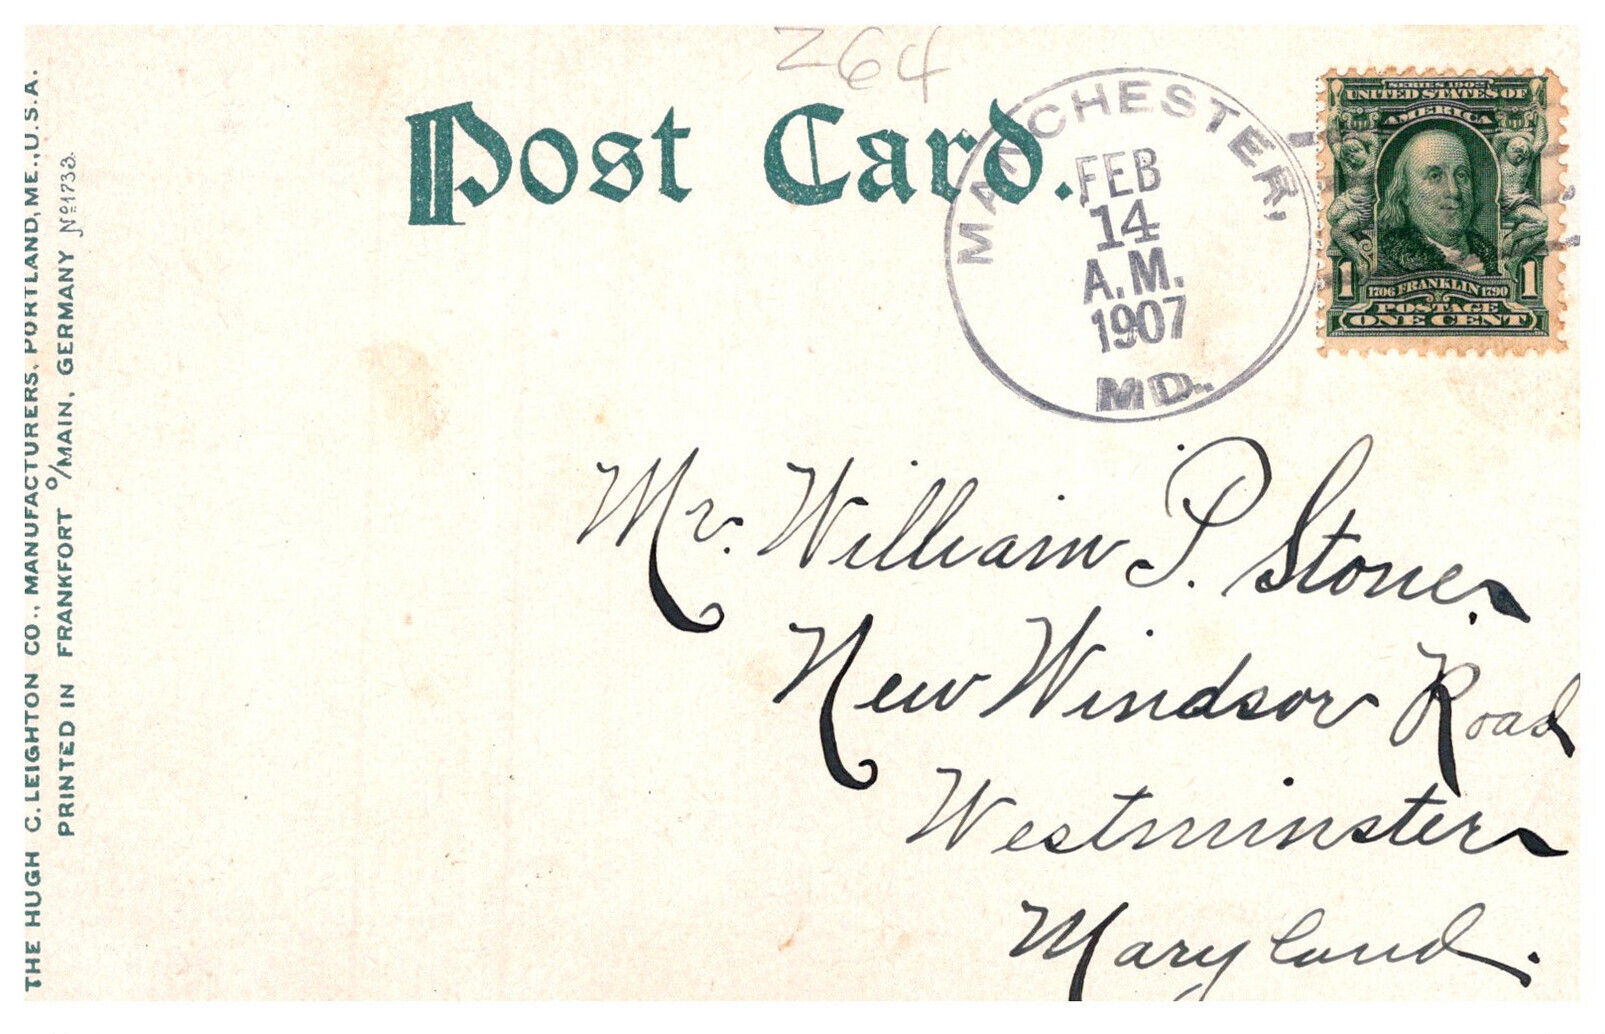 264
Post Card.
MANCHESTER,
FEB
14
A.M.
1907
MD.
SERIES 1902
UNITED STATES OF
AMERICA
1 1706 FRANKLIN 1790 1
POSTAGE
ONE CENT
Mr. William P. Stone.
New Windsor Road
Westminster
Maryland.
THE HUGH C. LEIGHTON CO., MANUFACTURERS, PORTLAND, ME., U.S.A.
PRINTED IN FRANKFORT O/MAIN, GERMANY No 1733.